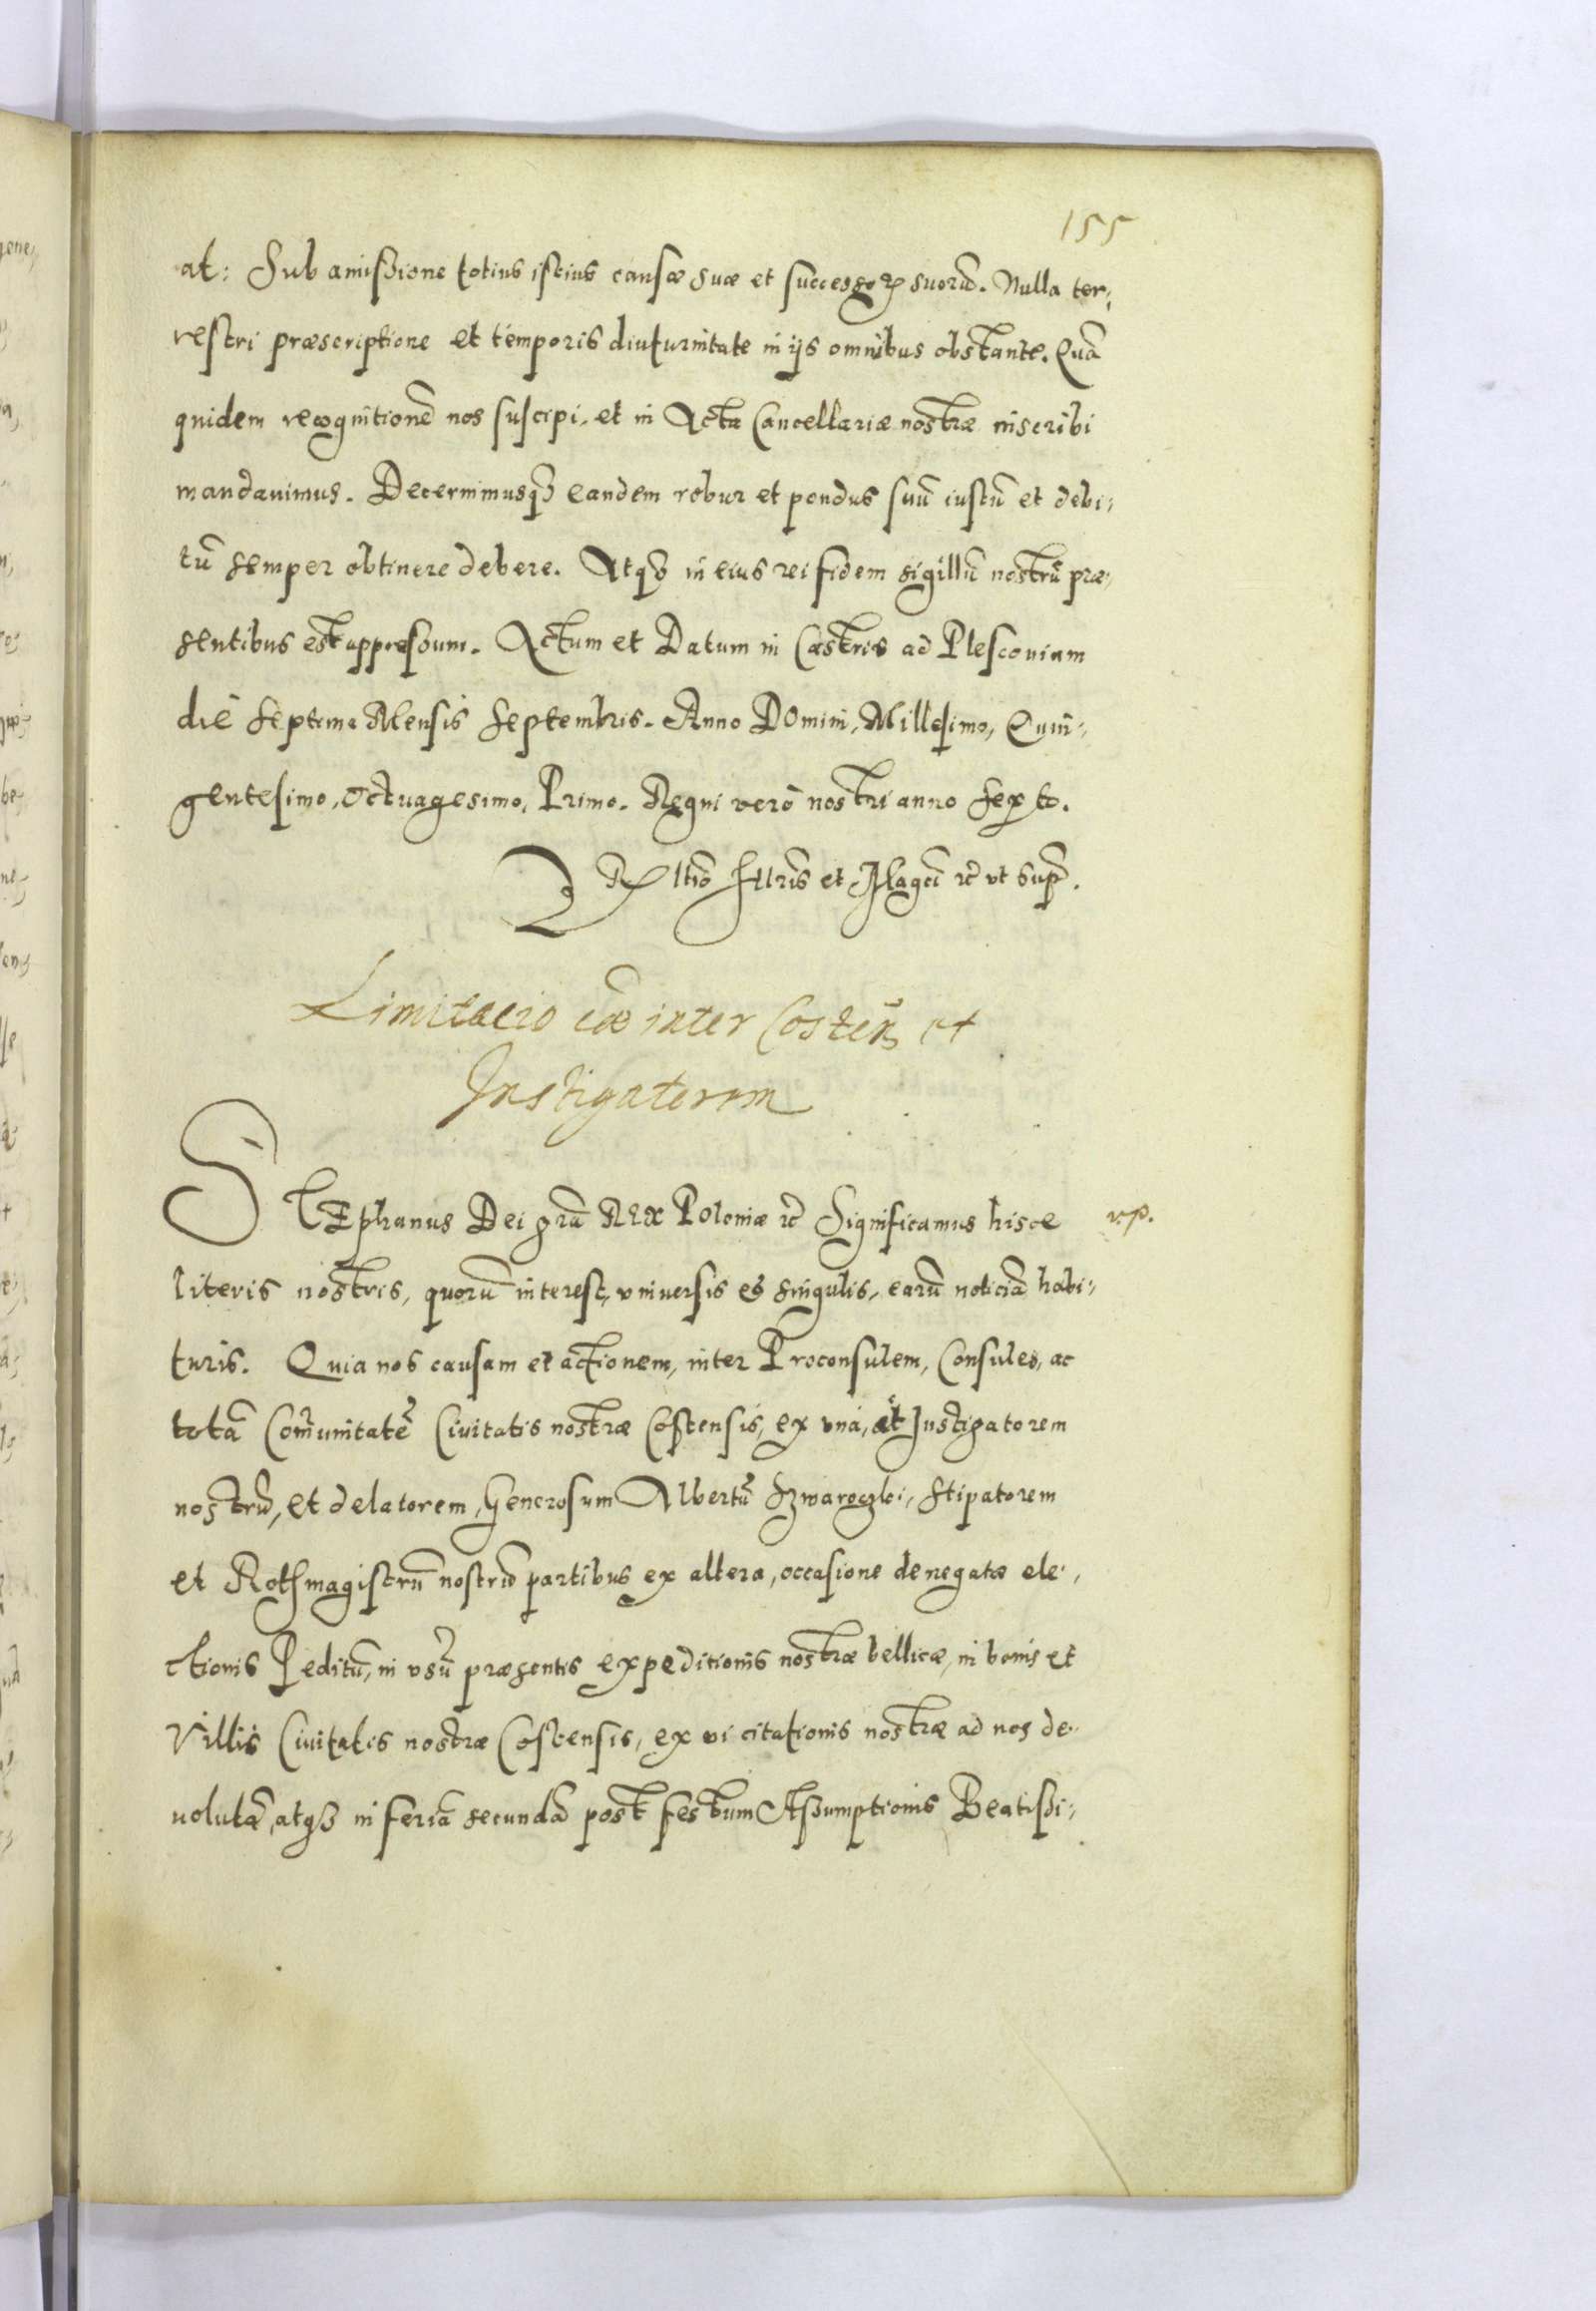 155
at: Sub amißione totius istius causæ suæ et successoꝝ suorū. Nulla ter,
restri præscriptione et temporis diuturnitate in ijs omnibus obstante. Quā
quidem recognitionē nos suscipi, et in Acta Cancellariæ nostræ inscribi
mandauimus. Decernimusqꝫ eandem robur et pondus suū iustū et debi,
tū semper obtinere debere. Atqꝫ in eius rei fidem sigillū nostrū præ,
sentibus est appressum. Actum et Datum in Castris ad Plescouiam
die septima Mensis Septembris. Anno Domini, Millesimo, Quin,
gentesimo, Octuagesimo, Primo. Regni verò nostri anno sexto.
Rltio Illris et Magci ꝛc̄ vt supꝛ.
Limitacio cæ inter Costeñ et
Instigatorem
STEphanus Dei grā REX Poloniæ ꝛc̄ Significamus hisce
v.p.
literis nostris, quorū interest, vniuersis et singulis, earū noticiā habi,
turis. Quia nos causam et actionem, inter Proconsulem, Consules, ac
totā Com̄unitatē Ciuitatis nostræ Costensis, ex vná, et Instigatorem
nostrū, et delatorem, Generosum Albertū Szwaroczki, Stipatorem
et Rothmagistrū nostrū partibus ex altera, occasione denegatæ ele,
ctionis Peditū, in vsū præsentis expeditionis nostræ bellicæ, in bonis et
Villis Ciuitatis nostræ Costensis, ex vi citationis nostræ ad nos de,
uolutā, atqꝫ in feriā secundā post festum Aßumptionis Beatißi,